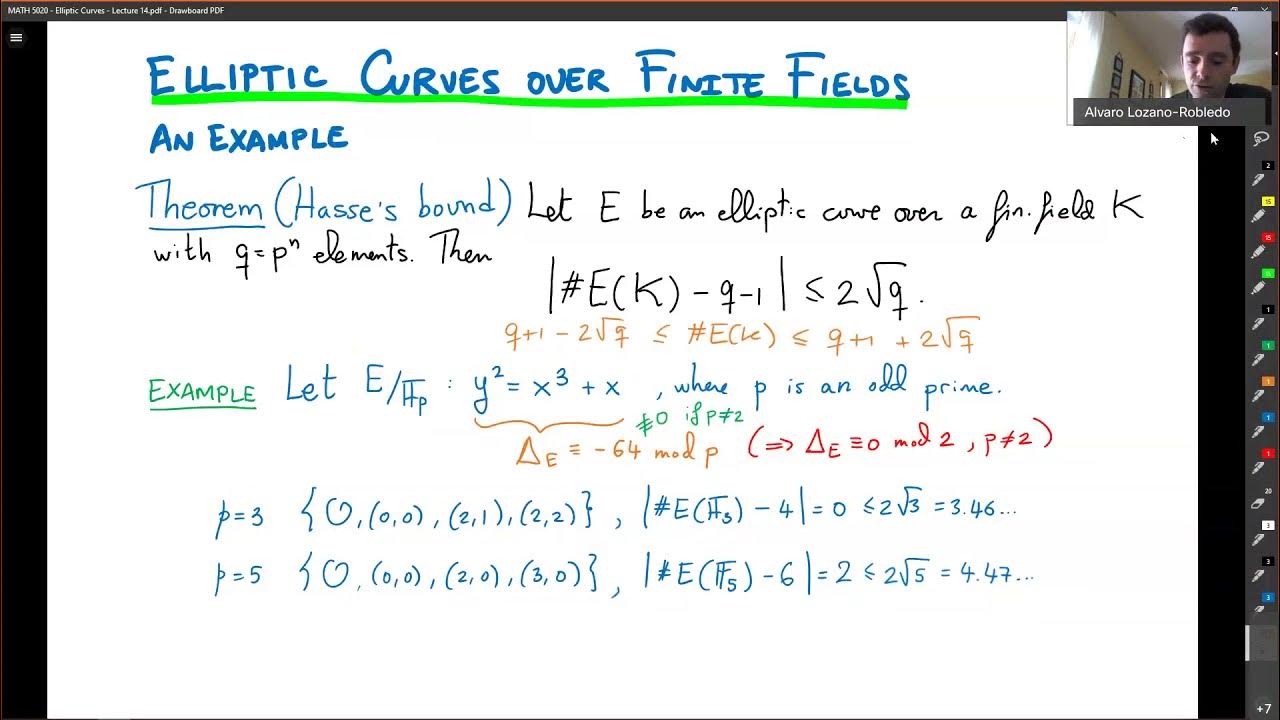 MATH 5020 - Elliptic Curves - Lecture 14.pdf - Drawboard PDF
Alvaro Lozano-Robledo
ELLIPTIC CURVES OVER FINITE FIELDS
AN EXAMPLE
Theorem (Hasse's bound) Let E be an elliptic curve over a fin. field K
with q=pⁿ elements. Then
|#E(K) - q-1| ≤ 2√q.
q+1 - 2√q ≤ #E(K) ≤ q+1 + 2√q
EXAMPLE Let E/𝔽p : y² = x³ + x , where p is an odd prime.
≢0 if p≠2
Δ_E ≡ -64 mod p (⇒ Δ_E ≡ 0 mod 2, p≠2)
p=3 {O, (0,0), (2,1), (2,2)}, |#E(𝔽₃) - 4| = 0 ≤ 2√3 = 3.46...
p=5 {O, (0,0), (2,0), (3,0)}, |#E(𝔽₅) - 6| = 2 ≤ 2√5 = 4.47...
2
15
15
15
1
1
1
1
1
20
3
3
3
+7